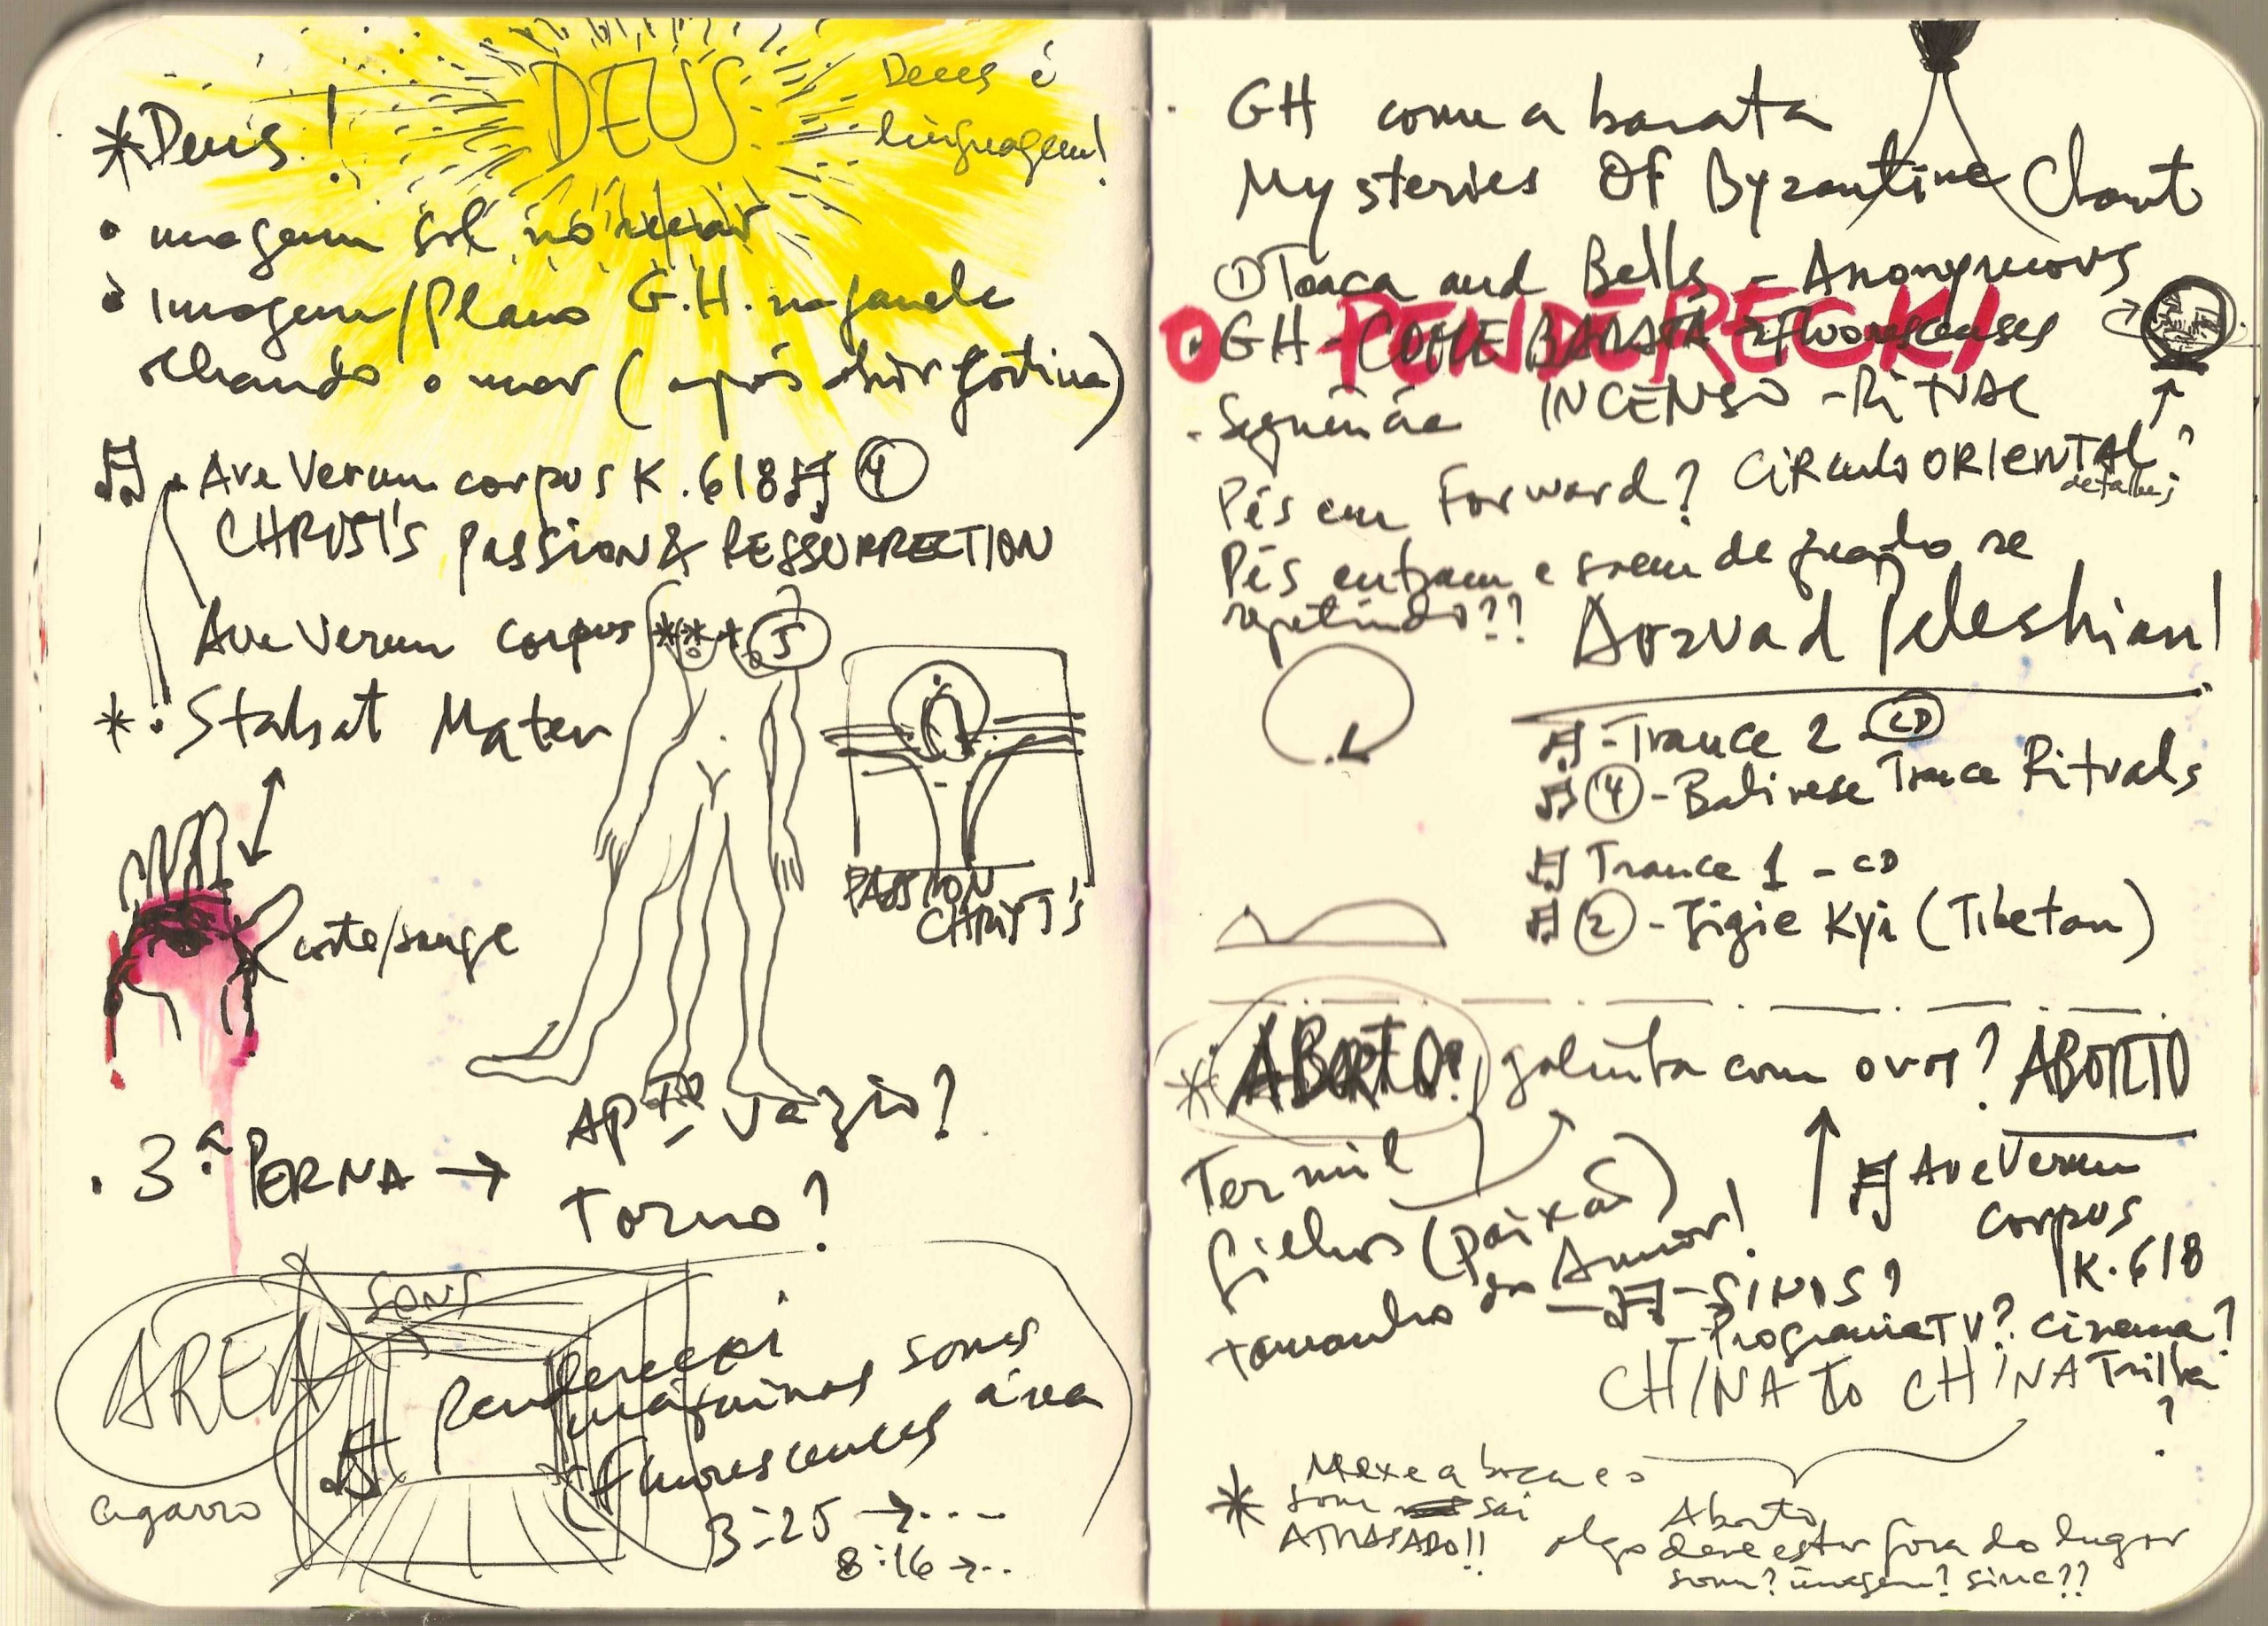 DEUS
Deus é
linguagem!
*Deus!
• imagem sol no mar
• Imagem/Plano G.H. na janela
olhando o mar (após abrir cortina)
Ave Verum corpus K.618 4
CHRIST'S PASSION & RESSURRECTION
Ave Verum corpus *** 5
* • Stabat Mater
corte/sangue
PASSION
CHRIST'S
• 3ª PERNA → APTO - vazio?
Torno?
AREA
SONS
Penderecki
máquinas sons
Fluorescences área
3:25 → ...
8:16 → ..
cigarro
GH come a barata
Mysteries OF Byzantine Chant
① Toaca and Bells - Anonymous
PENDERECKI
• GH - COME BARATA → Fluorescenses
• Sequência INCENSO - RITUAL
Pés em Forward? CIRculo ORIENTAL?
detalhes
Pés entram e saem de quadro se
repetindo??
Arzvad Peleshian!
- Trance 2 CD
④ - Balinese Trance Rituals
Trance 1 - CD
② - Jigie Kyi (Tibetan)
* ABORTO? galinha com ovos? ABORTO
Ter mil
filhos (paixão)
tamanho do Amor!
Ave Verum
corpus
K.618
- SINOS?
- Programa TV? cinema?
CHINA to CHINA Trilha
?
* Mexe a boca e o
som sai
ATRASADO!!
Aborto
algo deve estar fora do lugar
som? imagem? sinc??